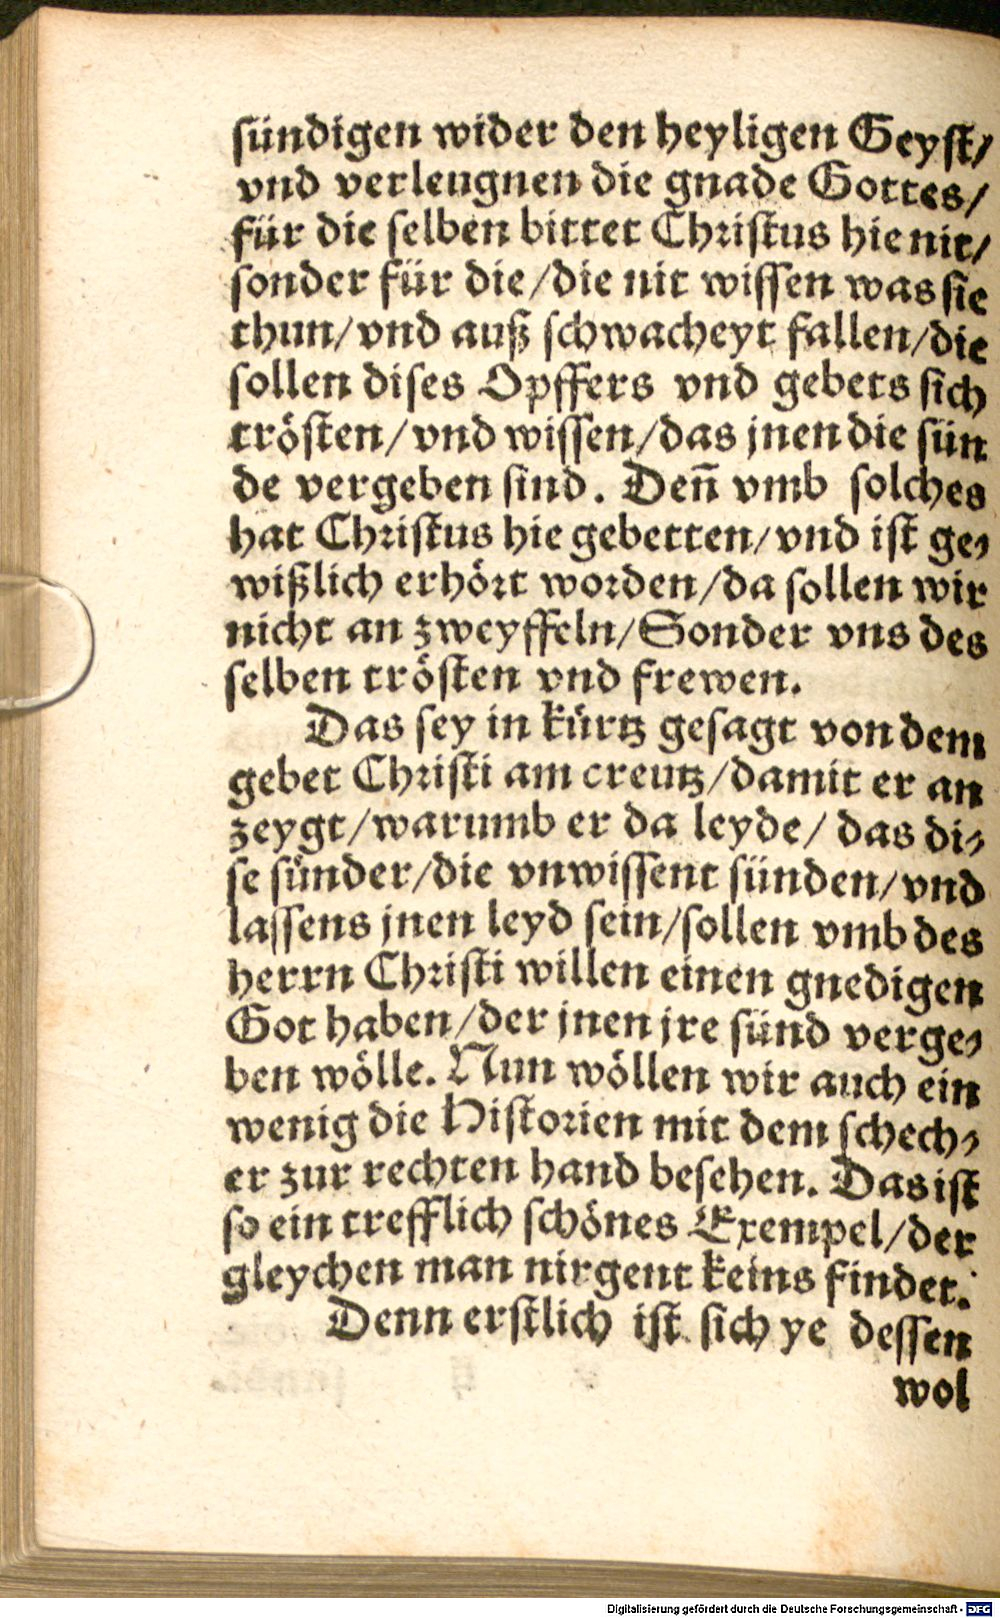 sündigen wider den heyligen Geyst/
vnd verleugnen die gnade Gottes/
für die selben bittet Christus hie nit/
sonder für die/die nit wissen was sie
thun/vnd auß schwacheyt fallen/die
sollen dises Opffers vnd gebets sich
trösten/vnd wissen/das jnen die sün
de vergeben sind. Deñ vmb solches
hat Christus hie gebetten/vnd ist ge-
wißlich erhört worden/da sollen wir
nicht an zweyffeln/Sonder vns des
selben trösten vnd frewen.
Das sey in kürtz gesagt von dem
gebet Christi am creutz/damit er an
zeygt/warumb er da leyde/ das di-
se sünder/die vnwissent sünden/vnd
lassens jnen leyd sein/sollen vmb des
herrn Christi willen einen gnedigen
Got haben/der jnen jre sünd verge-
ben wölle. Nun wöllen wir auch ein
wenig die Historien mit dem schech-
er zur rechten hand besehen. Das ist
so ein trefflich schönes Exempel/der
gleychen man nirgent keins findet.
Denn erstlich ist sich ye dessen
wol
Digitalisierung gefördert durch die Deutsche Forschungsgemeinschaft - DFG